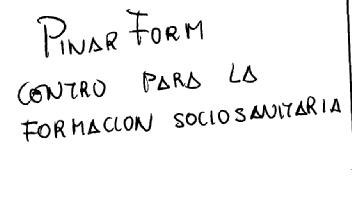 PINAR FORM
CONTRO PARA LA
FORMACION SOCIOSANITARIA